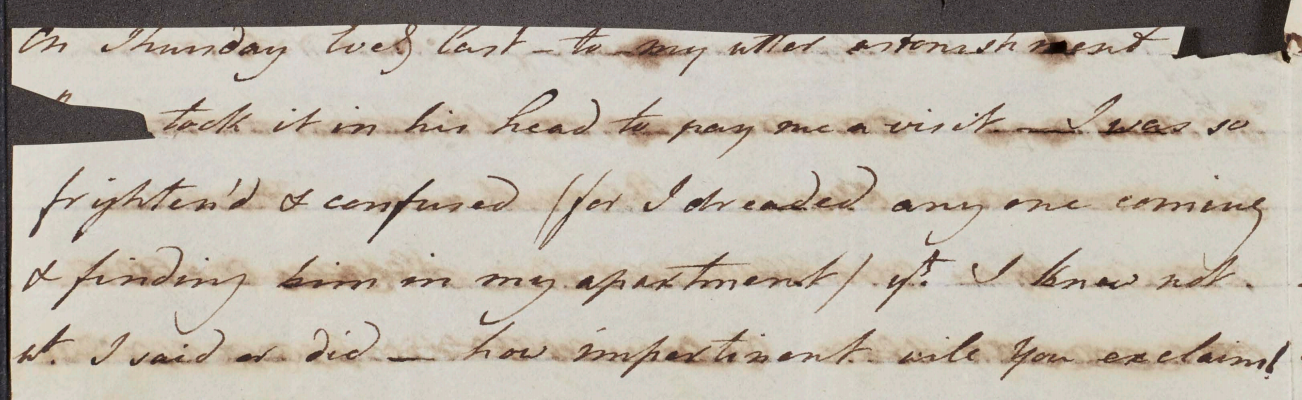 On Thursday Eveg last - to my utter astonishment
took it in his head to pay me a visit - I was so
frighten'd & confused (for I dreaded any one coming
& finding him in my apartment) yt. I knew not
wt. I said or did - how impertinent will you exclaim!